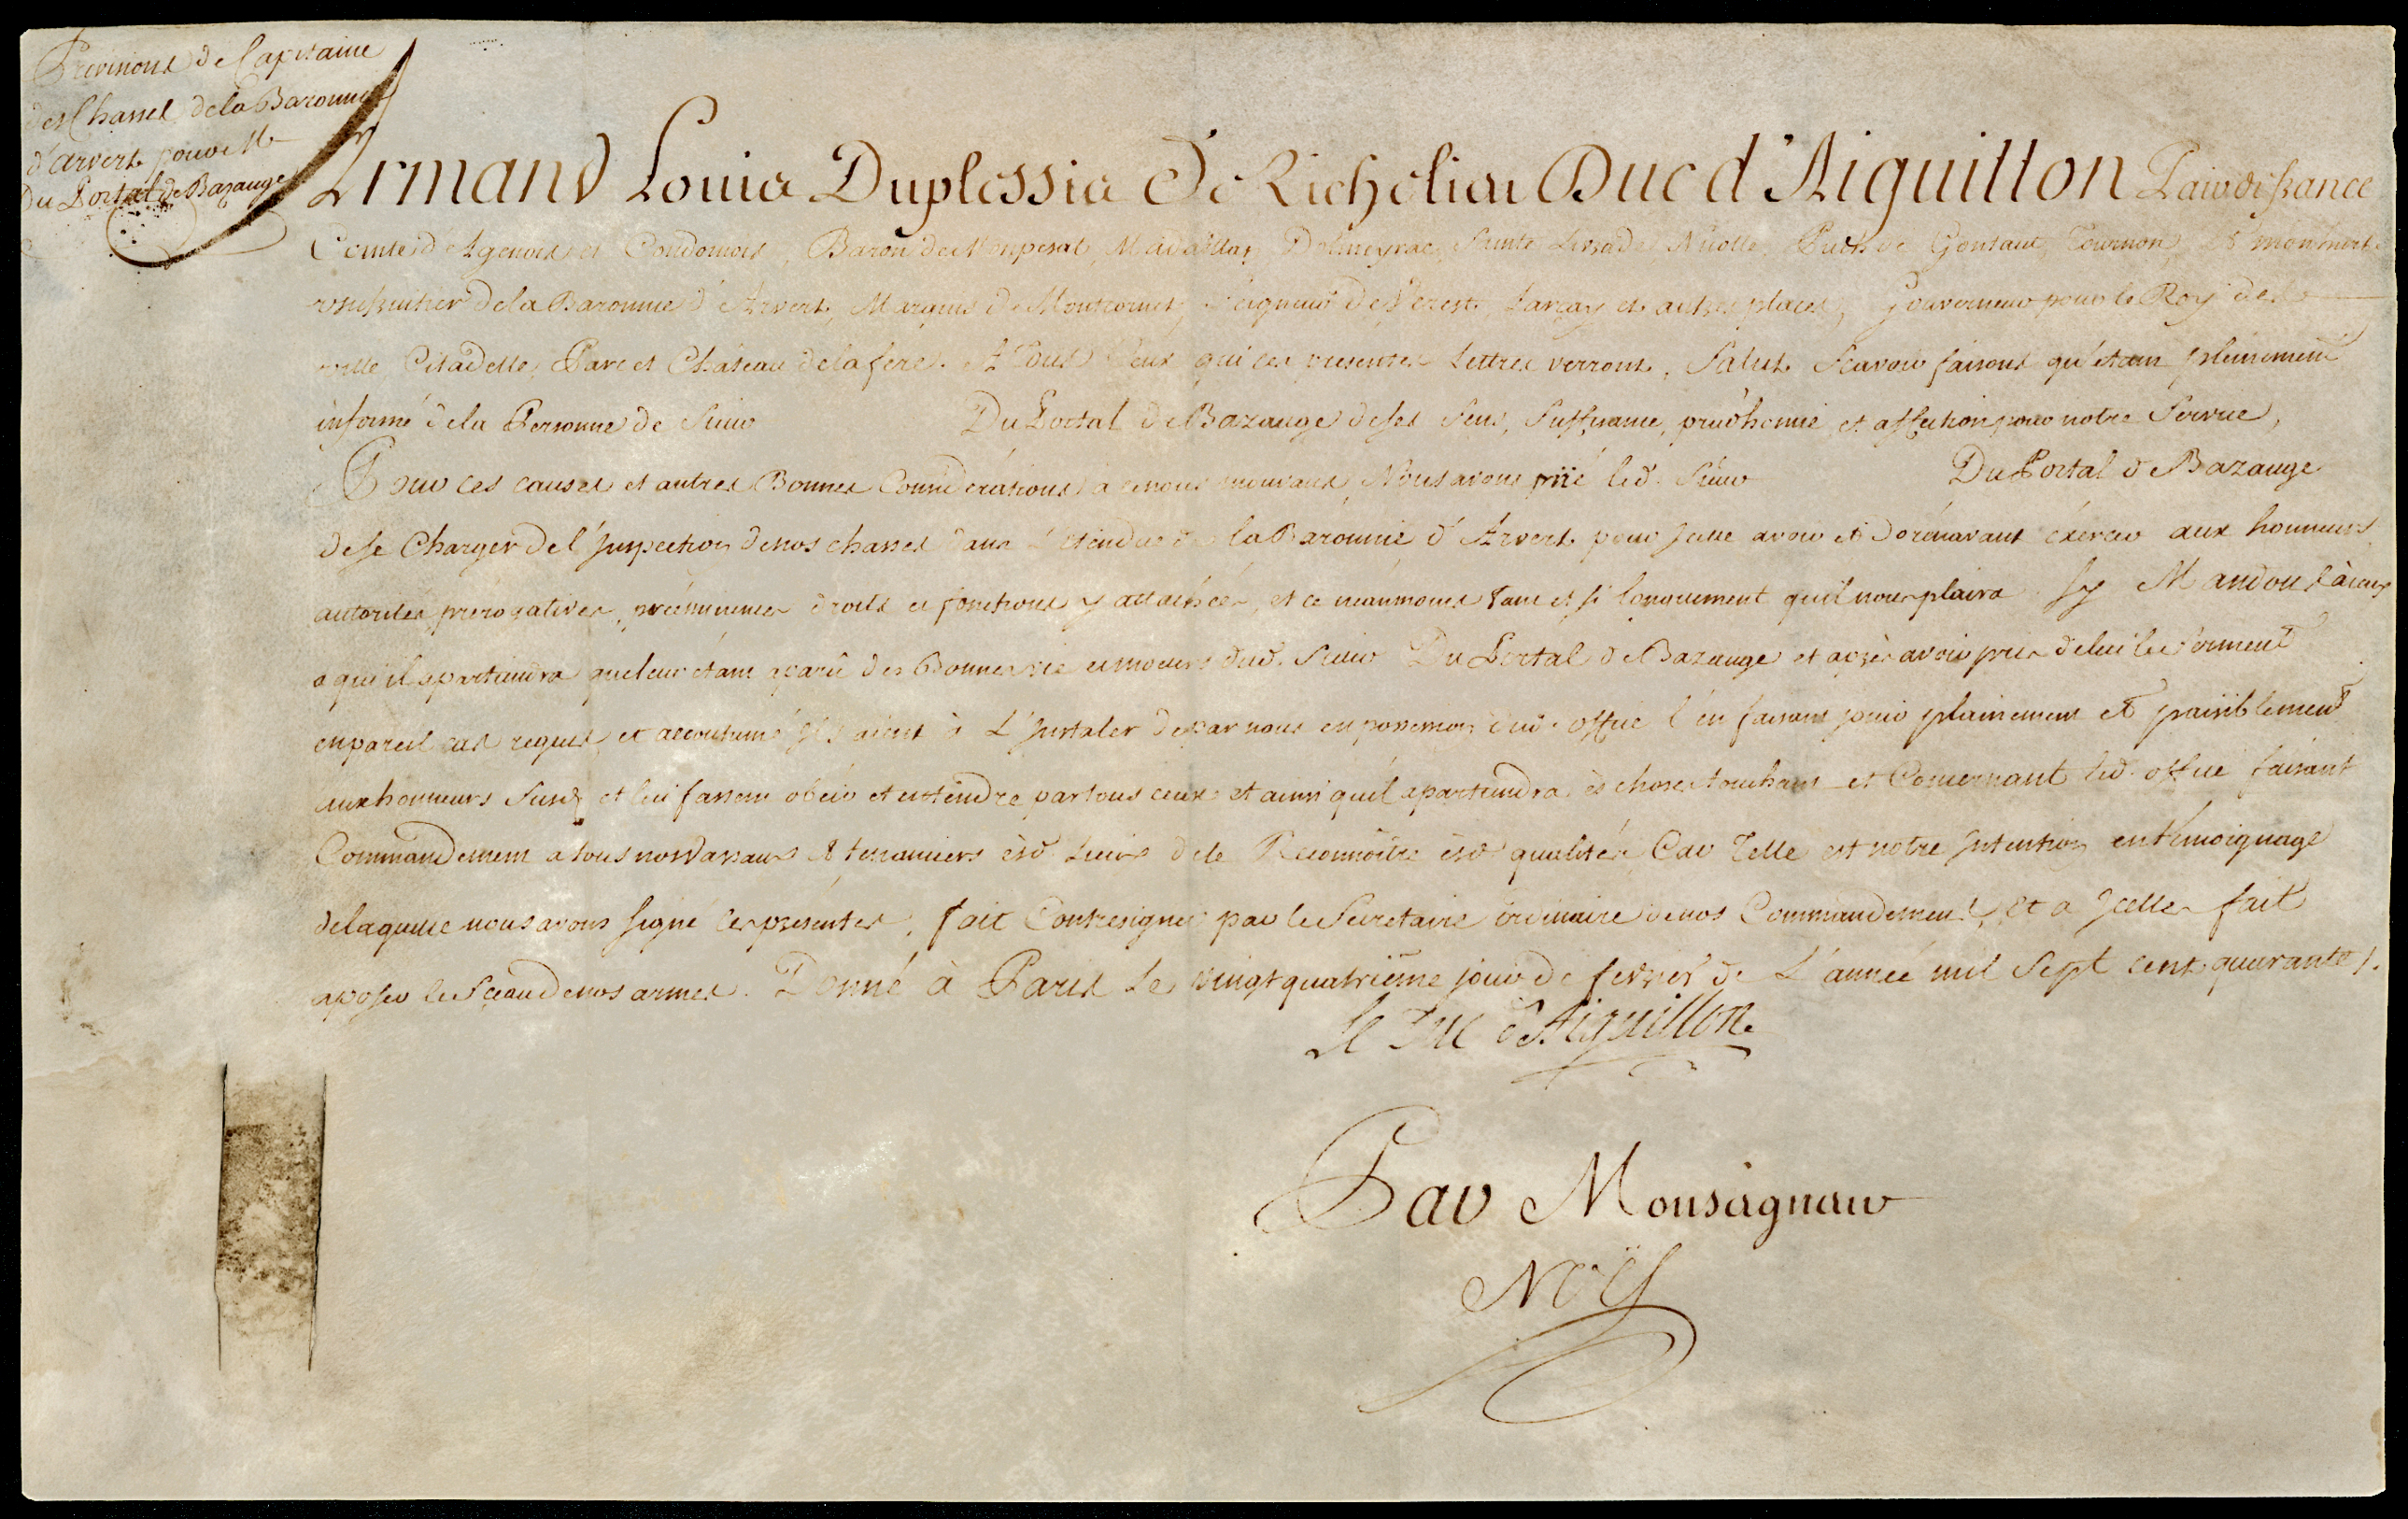 Provisions de Capitaine
des Chasses de la Baronnie
d'arvert pour M
Du Portal de Bazauge
Armand Louis Duplessis De Richelieu Duc d'Aiguillon Pair de france
Comte d'Agenois et Condomois, Baron de Monpesat, Madaillan, Dolmeyrac, Sainte Livrade, Nicolle, Puch de Gontaut, Tournon, & monmert.
usufruitier de la Baronnie d'Arvert, Marquis de Montcornet, Seigneur de Verest, Larçay et autres places, Gouverneur pour le Roy des
ville Citadelle, Parc et Château de la fere. A Tous Ceux qui ces presentes Lettres verront, Salut. Scavoir faisons qu'étant pleinement
informé de la Personne de Sieur Du Portal de Bazauge de ses Sens, Suffisance, prud'homie, et affection pour notre Service,
Pour ces causes et autres Bonnes Considérations à ce nous mouvans, Nous avons prié led. Sieur Du Portal de Bazauge
de se Charger de l'Inspection de nos chasses dans L'étendue de la Baronnie d'Arvert pour Jcelle avoir et dorénavant éxercer aux honneurs
autorités, prérogatives, prééminences droits et fonctions y attachées, et ce neanmoins tant et si longuement qu'il nous plaira. Sy Mandons à ceux
a qui il apartiendra que leur étant aparû des Bonnes vie et moeurs dud. Sieur Du Portal de Bazauge et après avoir pris de lui le serment
en pareil cas requis et accoutumé ils aient à L'Jnstaler de par nous en possession dud. office l'en faisant jouir plainement et paisiblement
aux honneurs Susd. et lui fassent obéir et entendre par tous ceux et ainsi qu'il apartiendra ès choses touchant et Concernant led. office faisant
Commandement a tous nos Vassaux & tenanciers èsd. Lieux de le Reconnoître èsd. qualités Car Telle est notre Jntention en témoignage
de laquelle nous avons signé les présentes, fait Contresigner par le Secretaire ordinaire de nos Commandemens, et a Jcelles fait
aposer le Sceau de nos armes. Donné à Paris Le vingt quatrième jour de fevrier de L'année mil Sept cent quarante /.
Le Duc d'Aiguillon
Par Monseigneur
Noÿ